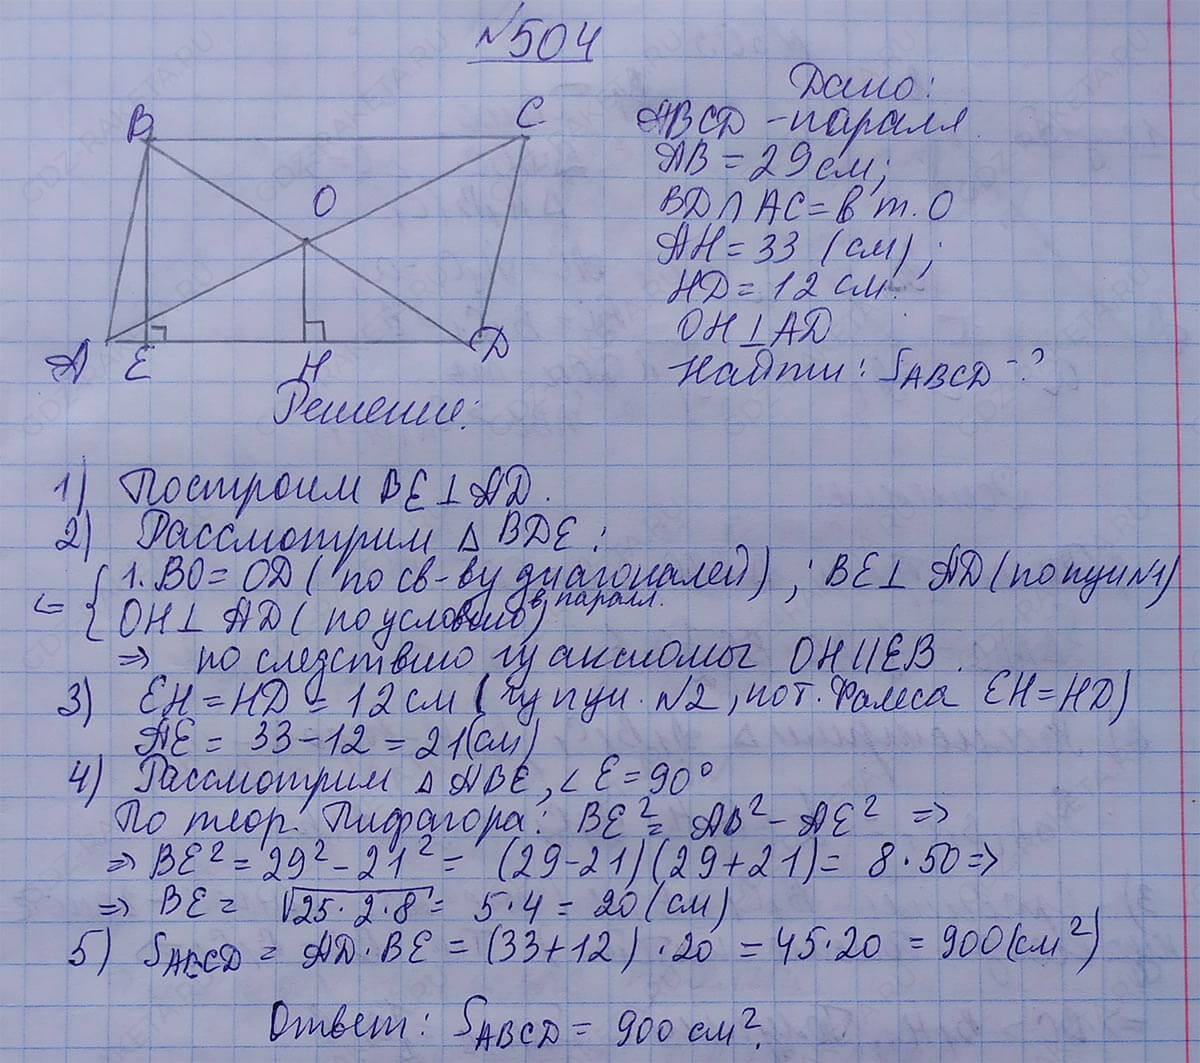 №504
Дано:
ABCD - паралл.
AB = 29 см;
BD ∩ AC = в т. O
AH = 33 (см);
HD = 12 см.
OH ⊥ AD
Найти: S ABCD - ?
B
C
O
A
E
H
D
Решение:
1) Построим BE ⊥ AD.
2) Рассмотрим △ BDE:
1. BO = OD (по св-ву диагоналей в паралл.); BE ⊥ AD (по пун №1)
OH ⊥ AD (по условию)
⇒ по следствию из аксиомы OH || EB.
3) EH = HD = 12 см (из пун. №2, по т. Фалеса EH = HD)
AE = 33 - 12 = 21 (см)
4) Рассмотрим △ ABE, ∠E = 90°
По теор. Пифагора: BE² = AB² - AE² ⇒
⇒ BE² = 29² - 21² = (29 - 21)(29 + 21) = 8 · 50 ⇒
⇒ BE = √25 · 2 · 8 = 5 · 4 = 20 (см)
5) S ABCD = AD · BE = (33 + 12) · 20 = 45 · 20 = 900 (см²)
Ответ: S ABCD = 900 см².
GDZ-RAKETA.RU